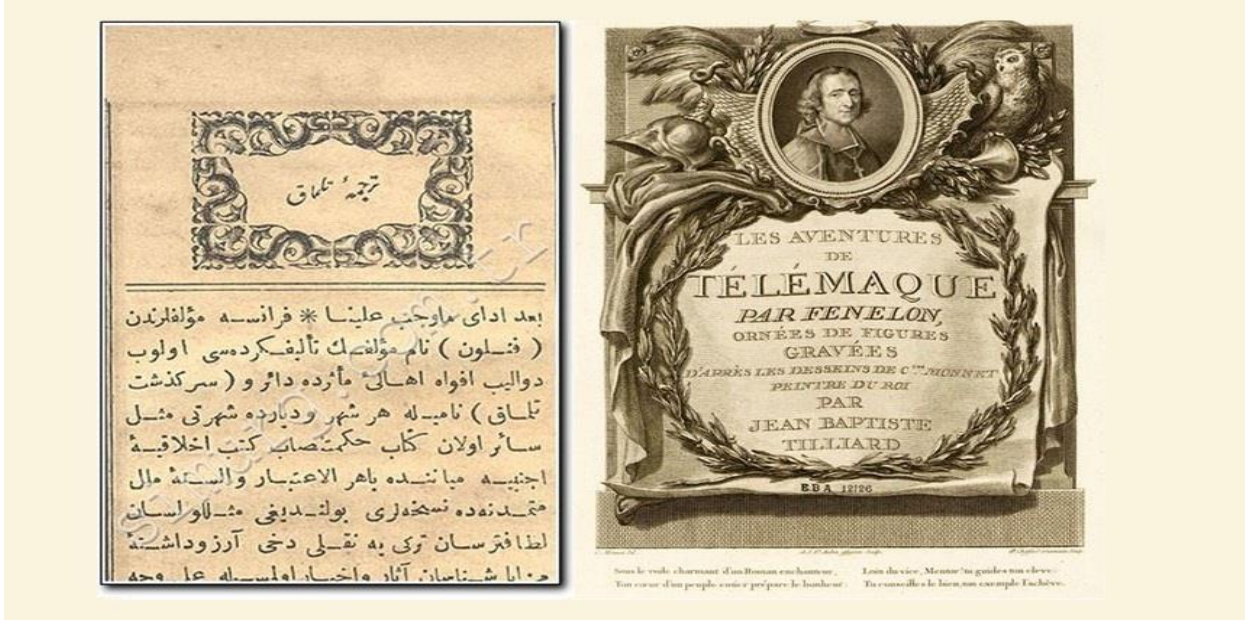 ترجمهٔ تلماق
بعد ادای ماوجب علینا * فرانسه مؤلفلرندن
( فنلون ) نام مؤلفك تألیفكرده‌سی اولوب
دوالیب افواه اهالی مأثرده دائر و ( سركذشت
تلماق ) نامیله هر شهر ودیارده شهرتی مثل
سائر اولان كتاب حكمتنصاب كتب اخلاقیهٔ
اجنبیه میاننده باهر الاعتبار والسنهٔ ملل
متمدنه‌ده نسخه‌لری بولندیغی مثللو لسان
لطافترسان تركی یه نقلی دخی آرزوداشتهٔ
LES AVENTURES
DE
TÉLÉMAQUE
PAR FENELON,
ORNÉES DE FIGURES
GRAVÉES
D'APRÈS LES DESSEINS DE C. MONNET
PEINTRE DU ROI
PAR
JEAN BAPTISTE
TILLIARD
EBA 12126
Sous le voile charmant d'un Roman enchanteur,
Ton cœur d'un peuple entier prépare le bonheur:
Loin du vice, Mentor, tu guides ton eleve:
Tu conseilles le bien, ton exemple l'achève.